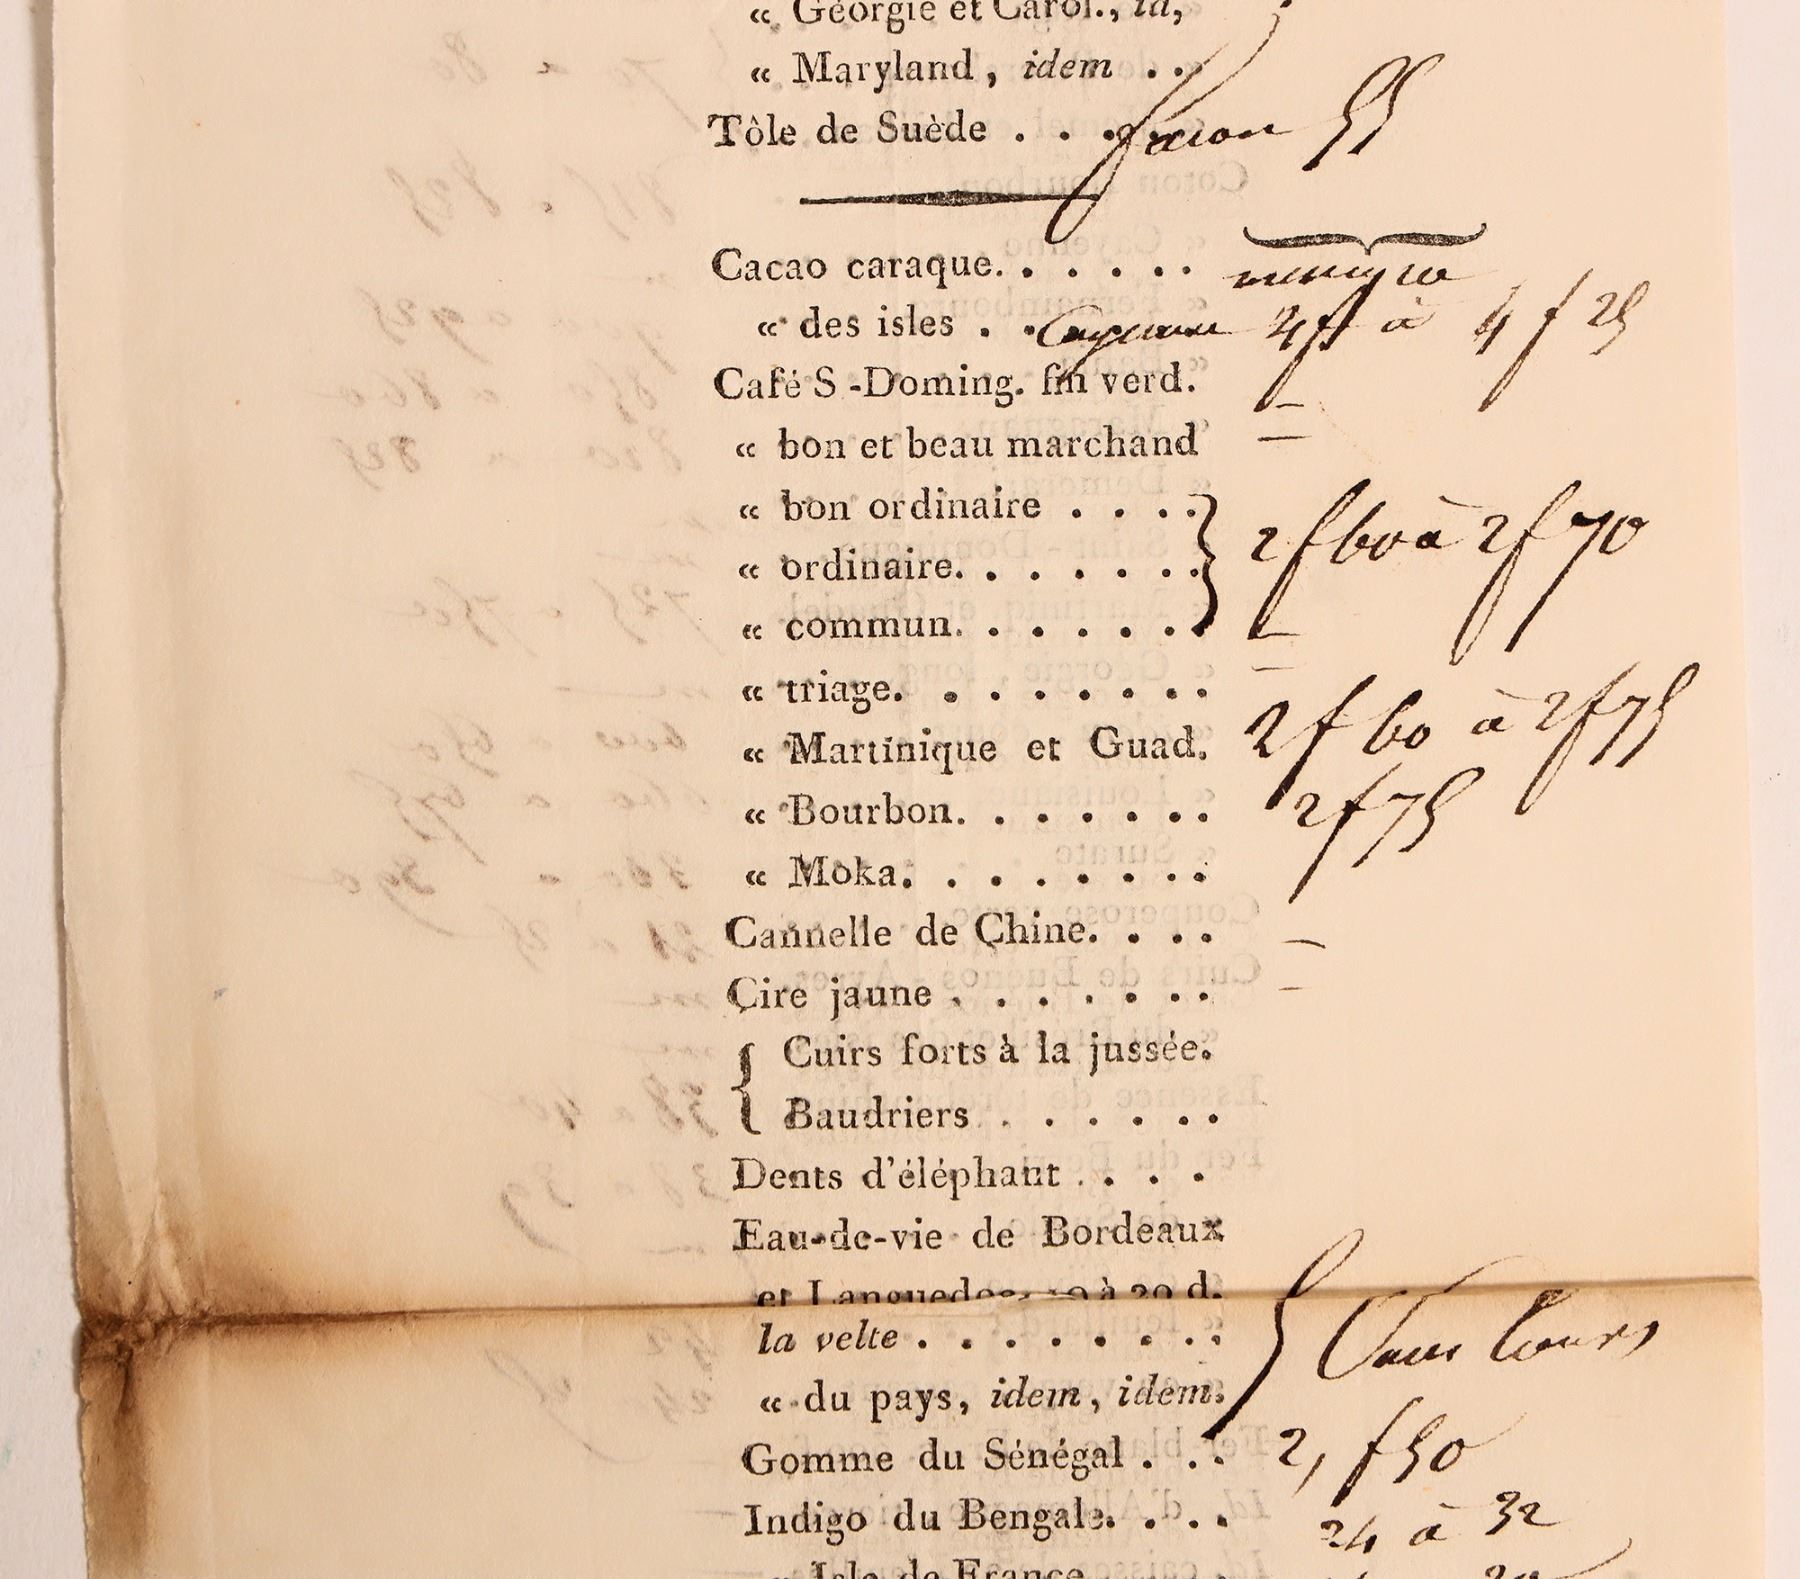 « Géorgie et Carol., id,
« Maryland, idem . .
Tôle de Suède . . . façon 55
Cacao caraque. . . . . . manque
« des isles . . Cayenne 4f à 4f25
Café S -Doming. fin verd. —
« bon et beau marchand —
« bon ordinaire . . . .
« ordinaire. . . . . . . 2f60 à 2f70
« commun. . . . . . . —
« triage. . . . . . . . —
« Martinique et Guad. 2f60 à 2f75
« Bourbon. . . . . . . 2f75
« Moka. . . . . . . .
Cannelle de Chine. . . . —
Cire jaune . . . . . . . —
Cuirs forts à la jussée.
Baudriers . . . . . .
Dents d'éléphant . . . .
Eau-de-vie de Bordeaux
et Languedoc à 20 d.
la velte . . . . . . . . Sans Cours
« du pays, idem, idem.
Gomme du Sénégal . . . 2, f50
Indigo du Bengale. . . . 24 à 32
« Isle de France